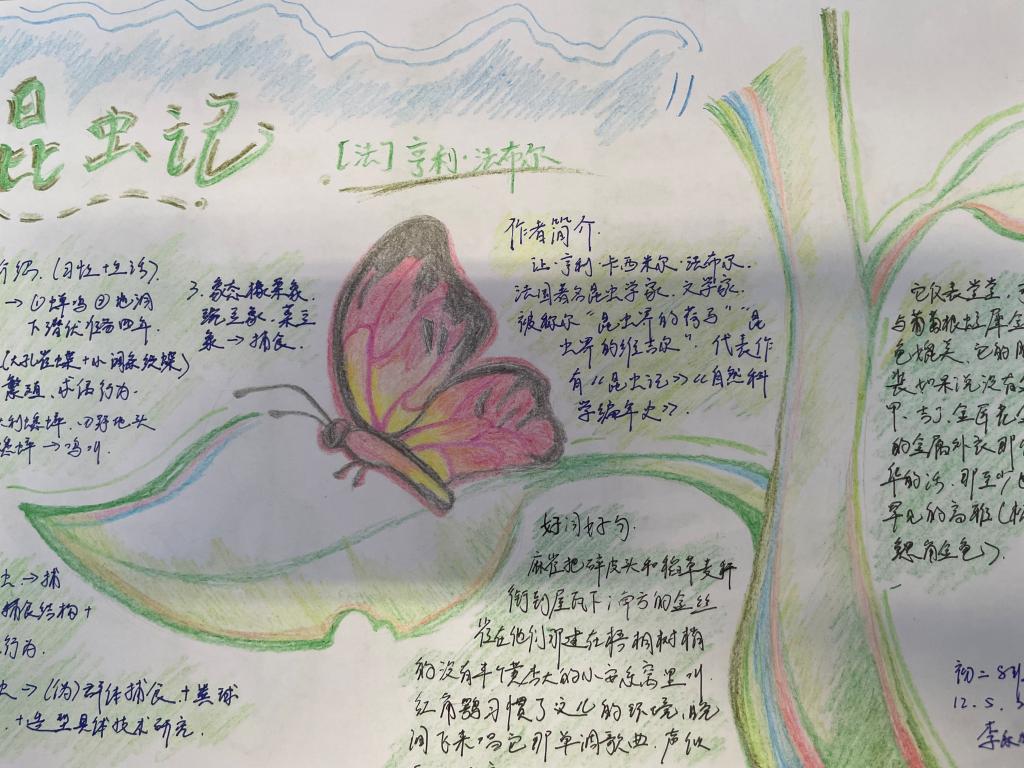 昆虫记
[法]亨利·法布尔
介绍.(习性+生活)
→①蝉鸣②地洞
下潜伏准备四年.
(大孔雀蝶+小阔条纹蝶)
繁殖、求偶行为.
3.象态橡栗象.
豌豆象.菜豆
象→捕食.
作者简介.
让·亨利·卡西米尔·法布尔.
法国著名昆虫学家.文学家.
被称尔“昆虫界的荷马”“昆
虫界的维吉尔”.代表作
有《昆虫记》《自然科
学编年史》.
虫→捕
捕食结构+
行为.
虫→(伪)群体捕食.+粪球
+造型具体技术研究.
好词好句.
麻雀把碎皮头和稻草麦秆
衔到屋瓦下;南方的金丝
雀在他们那建在梧桐树梢
的没有半个黄杏大的小安乐窝里叫.
红角鸮习惯了这儿的环境,晚
间飞来唱它那单调歌曲.声似
它仪表堂堂.
与葡萄根蛀犀金
色媲美.它的
装.如果说没有
甲.吉丁.金匠花金
的金属外衣那
华的话.那至少
罕见的高雅(松
鳃角金龟)
初二8
12.5.
李